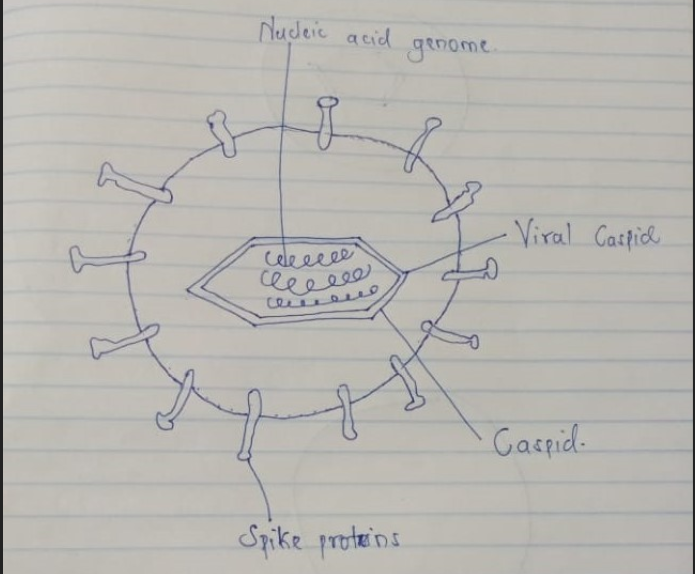 Nucleic acid genome.
Viral Caspid
Caspid.
Spike proteins